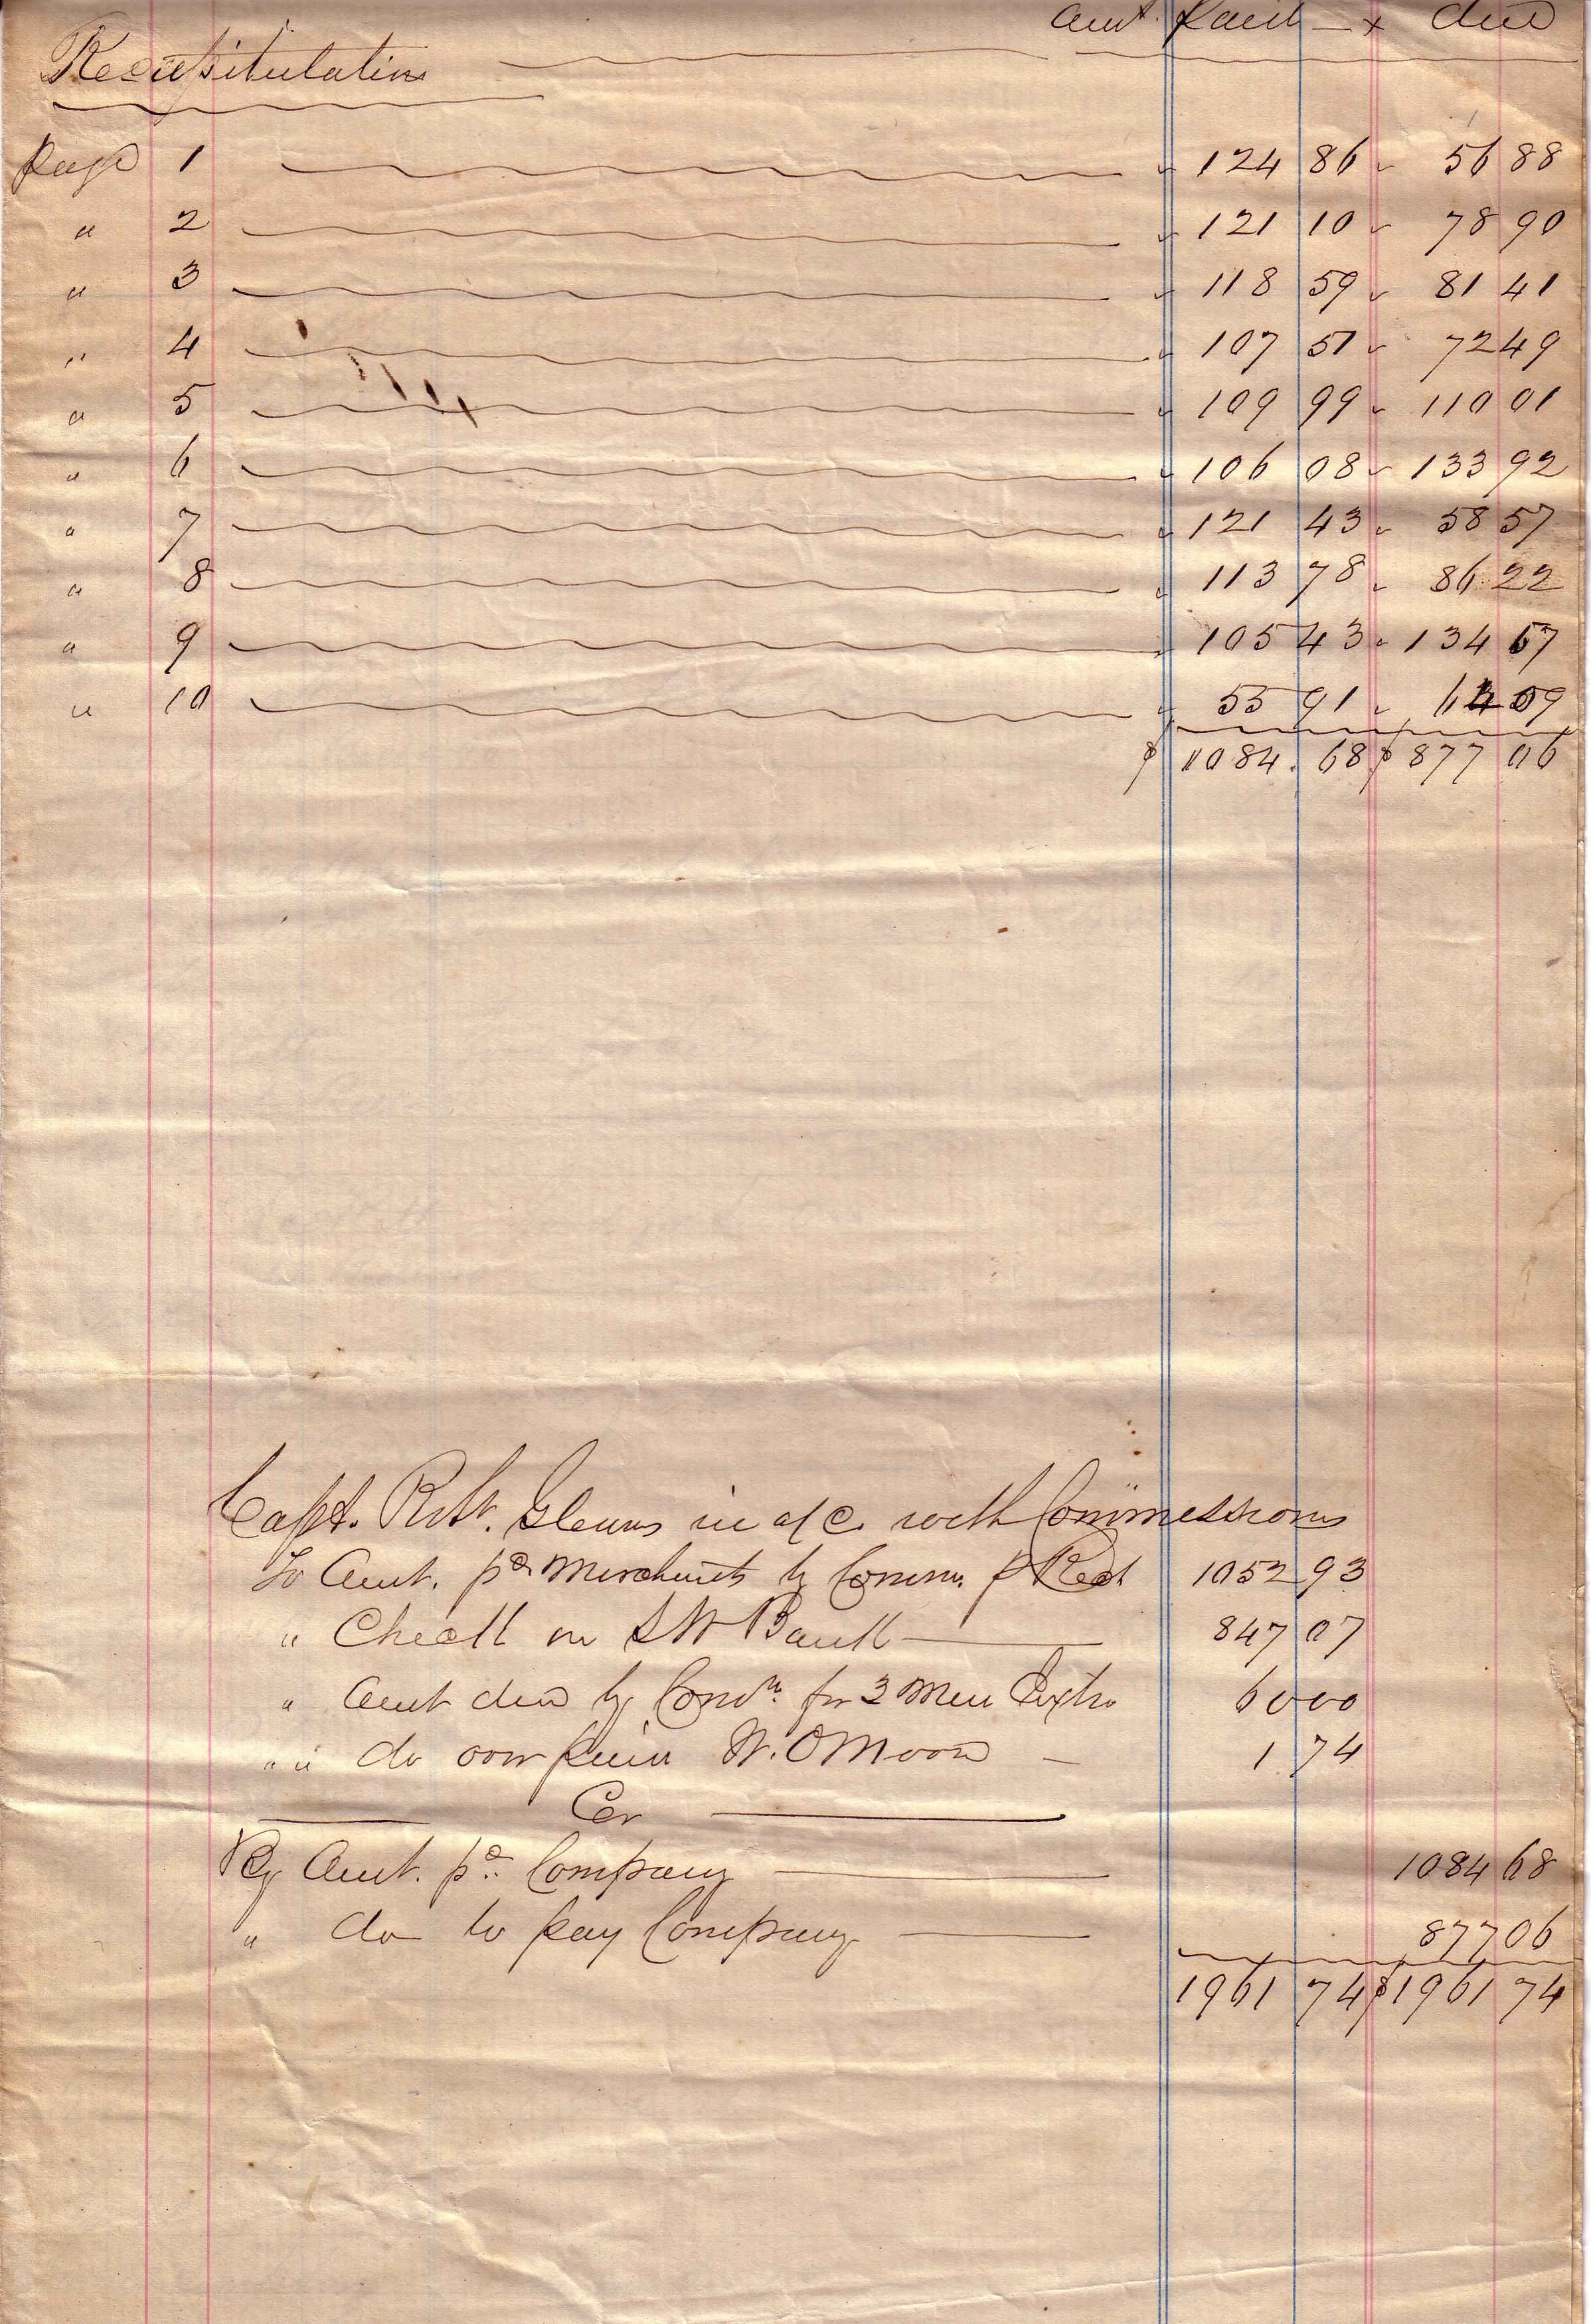 amt. paid — x due
Recapitulation
Page 1 124 86 56 88
" 2 121 10 78 90
" 3 118 59 81 41
" 4 107 51 72 49
" 5 109 99 110 01
" 6 106 08 133 92
" 7 121 43 58 57
" 8 113 78 86 22
" 9 105 43 134 57
" 10 55 91 64 09
$ 1084.68 $ 877 06
Capt. Robt. in a/c with Commissions
To Amt. pd Merchants by Comm. p Rect 1052 93
" Check on S W Bank 847 07
" Amt due by Comm. for 3 Men Extra 60 00
" " do over paid W. O Moon 1 74
Cr
By Amt. pd. Company 1084 68
" do to pay Company 877 06
1961 74 $ 1961 74